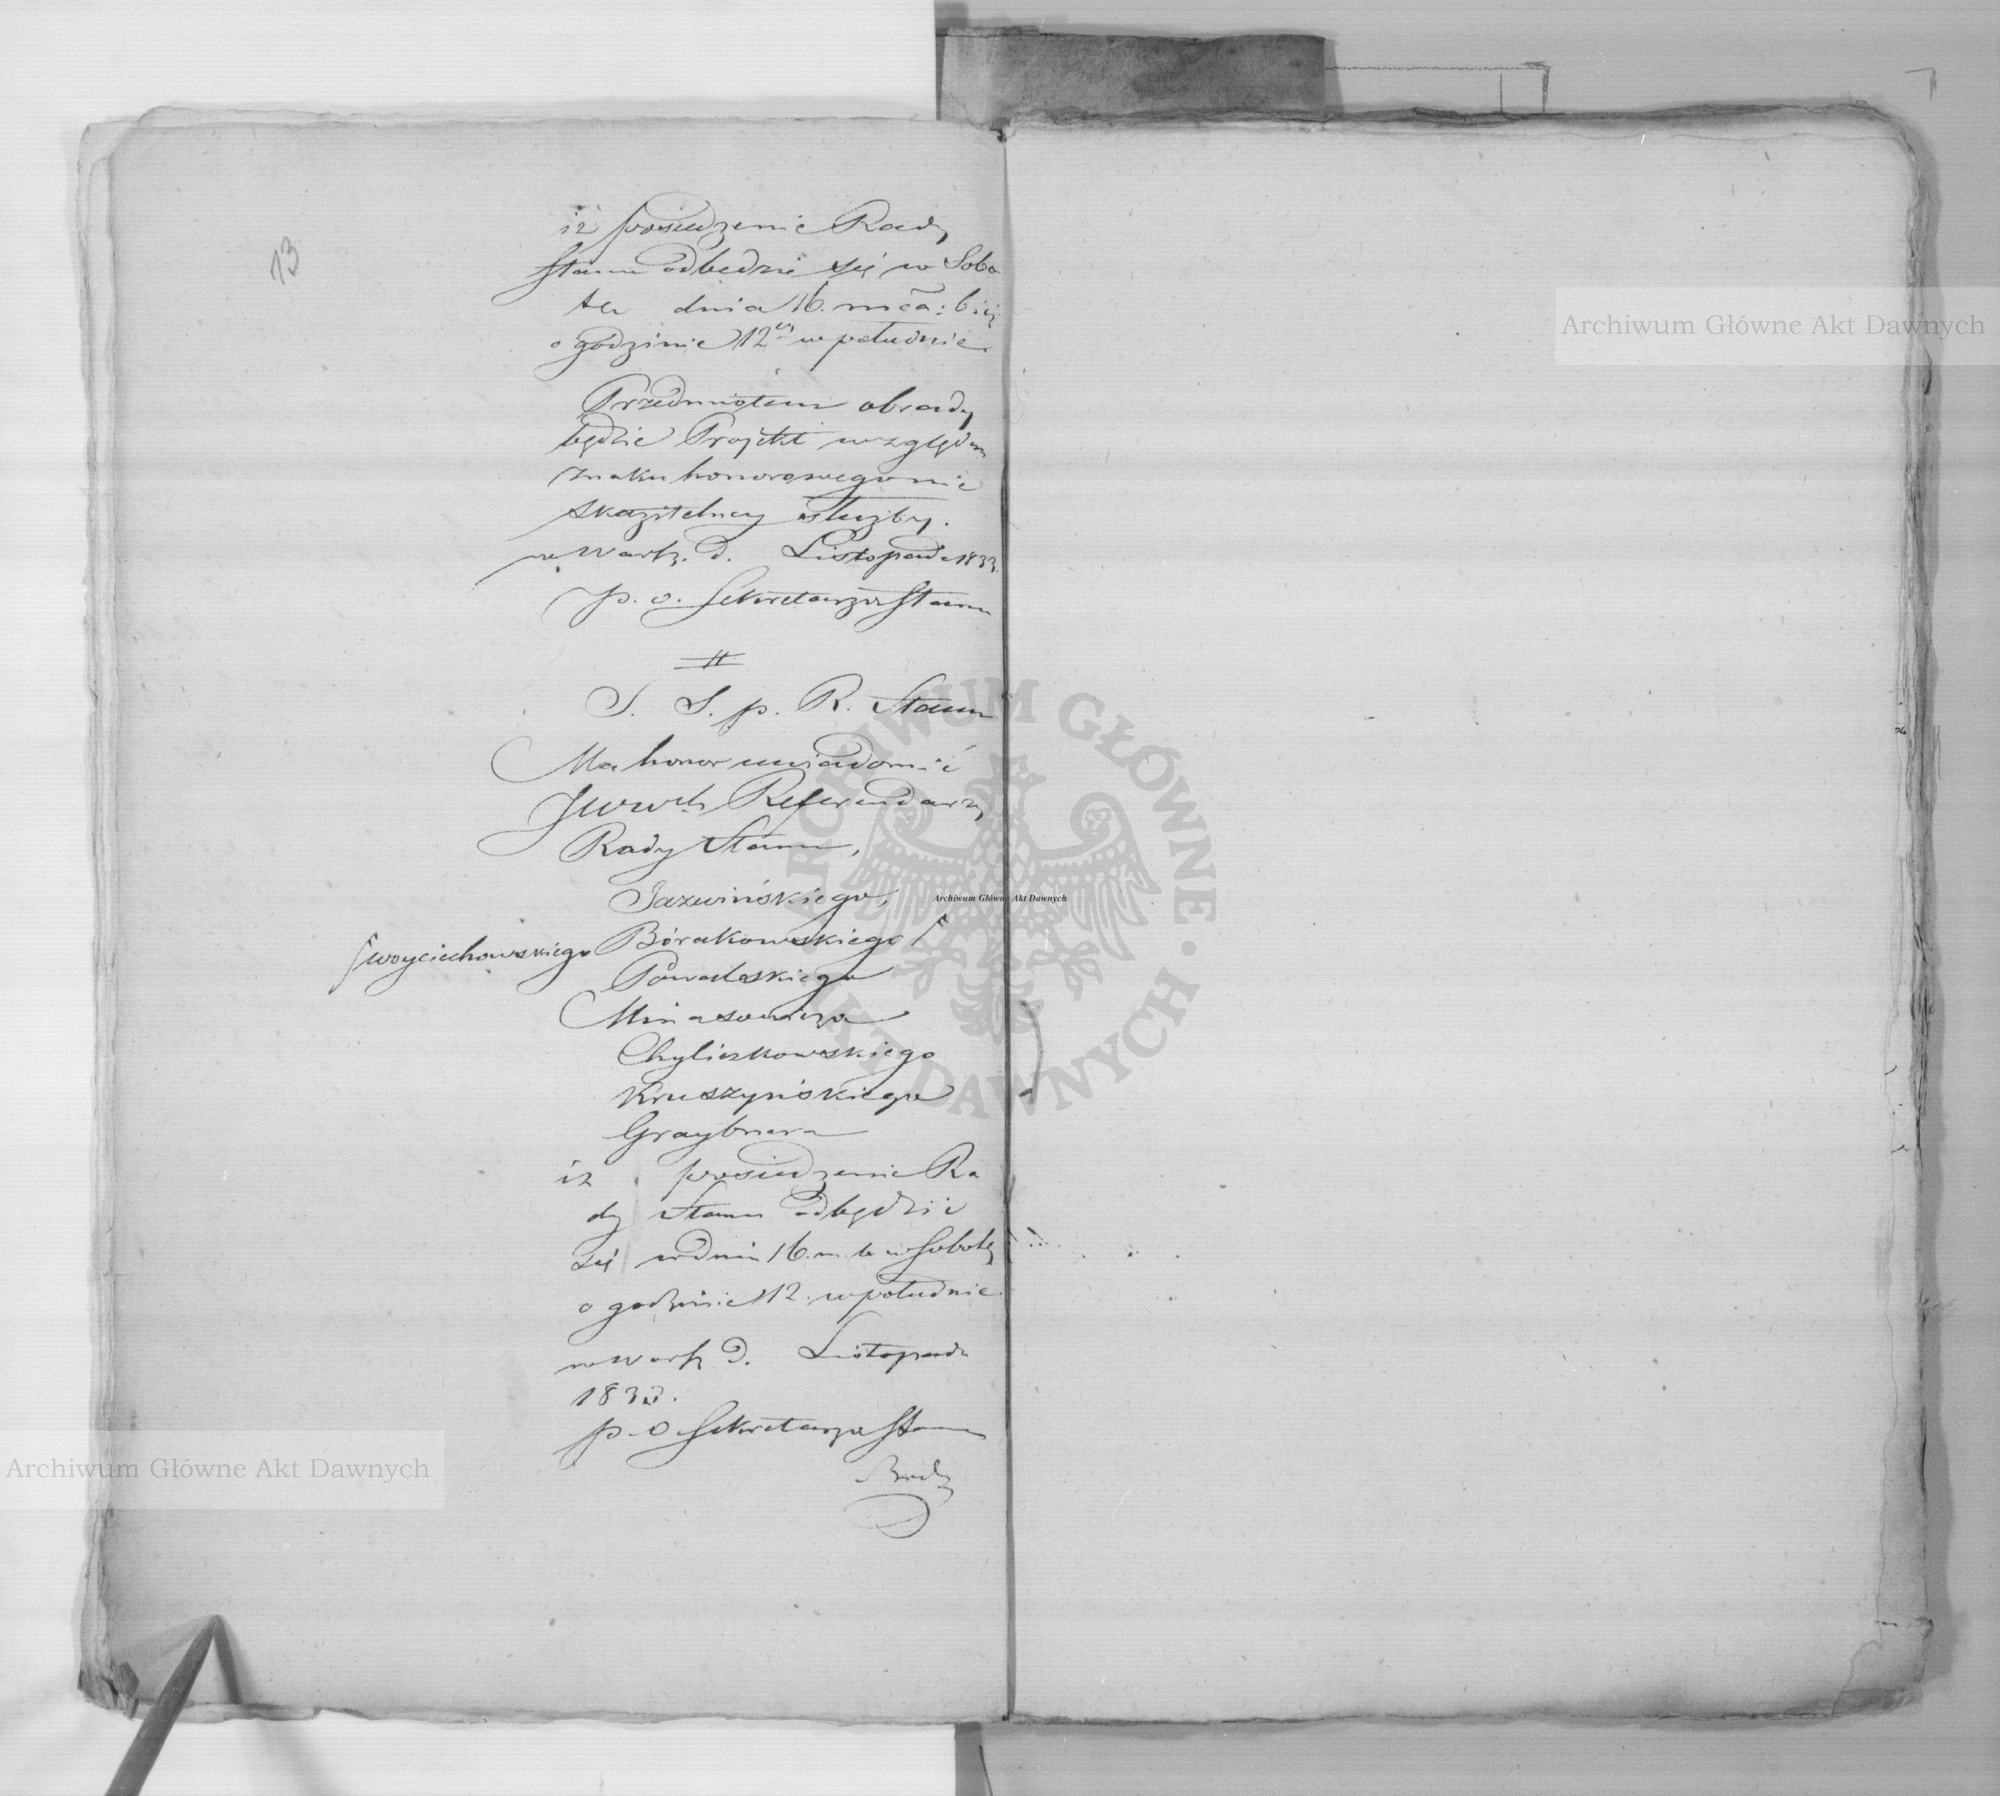 13
iż posiedzenie Rady
Stanu odbędzie się w Sobo
tę dnia 16. mca: bież
o godzinie 12éj w południe.
Przedmiotem obrady
będzie Projekt względem
znaku honorowego nie
skazitelney służby.
w Warsz. d. Listopada 1833.
p. o. Sekretarza Stanu
S. S. p. R. Stanu
Ma honor uwiadomić
JWWch Referendarzy
Rady Stanu,
Jazwińskiego,
Bórakowskiego
Woyciechowskiego
Powalskiego
Minasowicza
Chyliczkowskiego
Kruszyńskiego
Graybnera
iż posiedzenie Ra
dy Stanu odbędzie
się w dniu 16. m. b. w Sobotę
o godzinie 12. w południe.
w Warsz d. Listopada
1833.
p. o Sekretarza Stanu
Archiwum Główne Akt Dawnych
Archiwum Główne Akt Dawnych
Archiwum Główne Akt Dawnych
ARCHIWUM GŁÓWNE AKT DAWNYCH